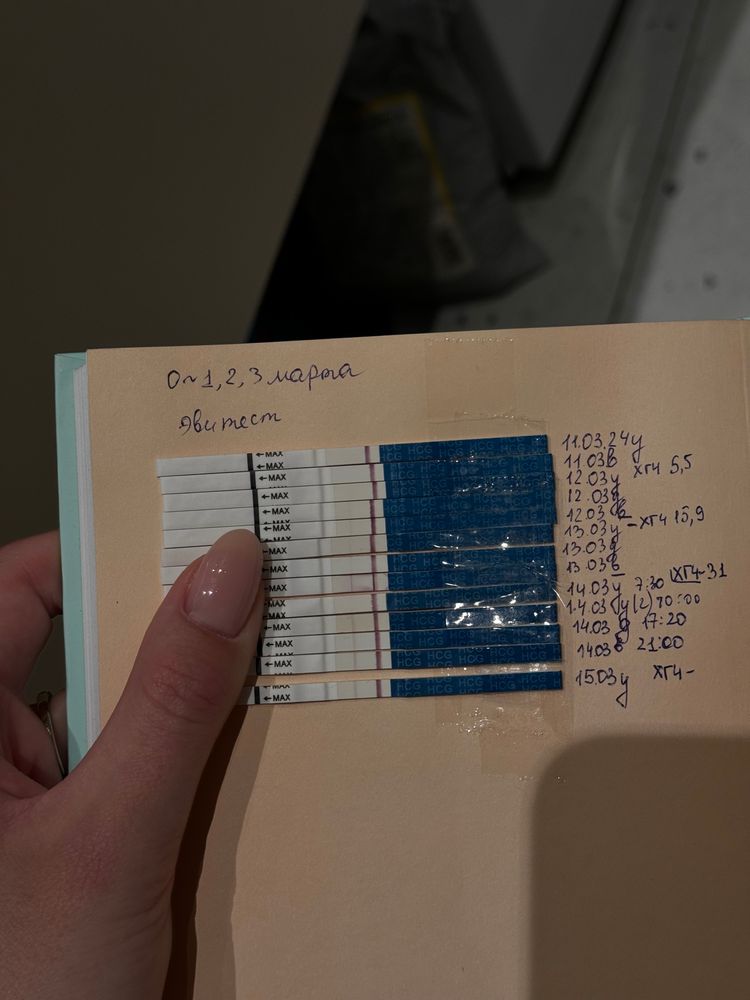 О~1,2,3 марта
Эвитест
11.03.24у
11.03в
ХГЧ 5,5
12.03у
12.03д
12.03в
-ХГЧ 15,9
13.03у
13.03д
13.03в
14.03у 7:30 ХГЧ-31
14.03 у(2) 10:00
14.03 д 17:20
14.03в 21:00
15.03у ХГЧ-
←MAX
←MAX
←MAX
←MAX
←MAX
←MAX
←MAX
←MAX
←MAX
←MAX
←MAX
←MAX
←MAX
←MAX
HCG HCG HCG HCG